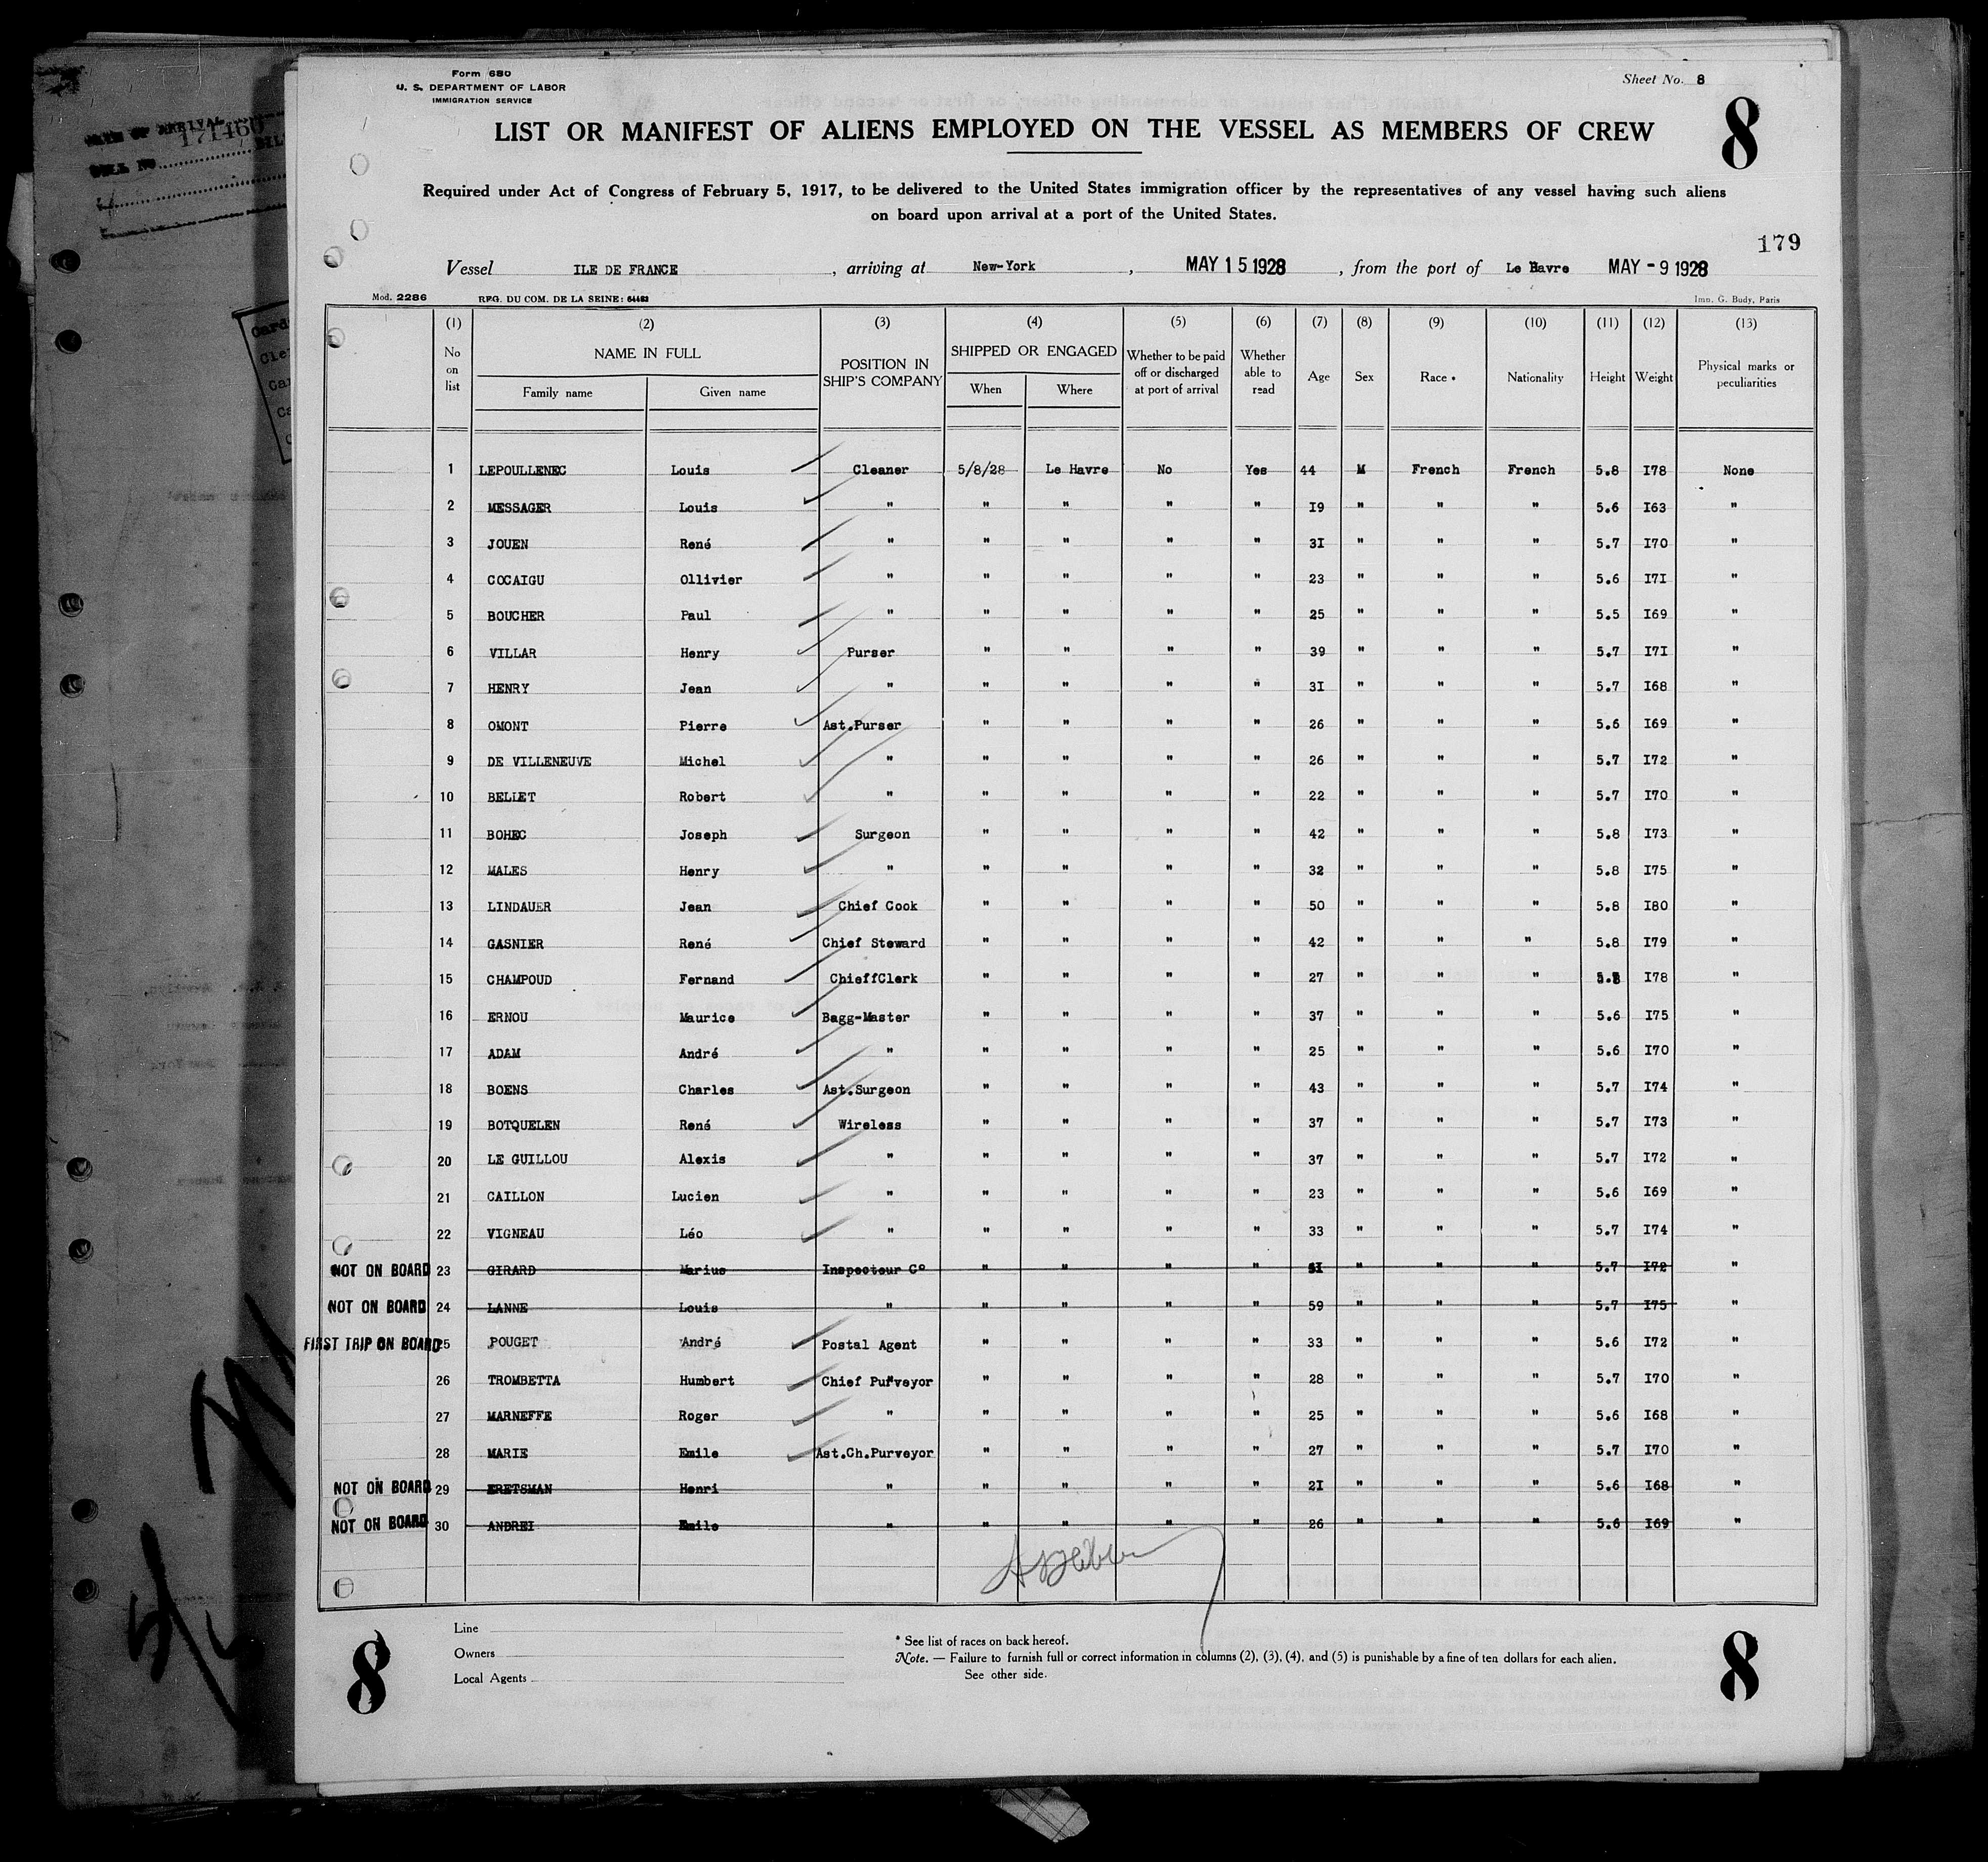 Form 680
U. S. DEPARTMENT OF LABOR
IMMIGRATION SERVICE
Sheet No. 8
8
LIST OR MANIFEST OF ALIENS EMPLOYED ON THE VESSEL AS MEMBERS OF CREW
Required under Act of Congress of February 5, 1917, to be delivered to the United States immigration officer by the representatives of any vessel having such aliens
on board upon arrival at a port of the United States.
179
Vessel ILE DE FRANCE, arriving at New-York, MAY 15 1928, from the port of Le Havre MAY - 9 1928
Mod. 2286 REG. DU COM. DE LA SEINE: 64483 Imn. G. Budy, Paris
(1) (2) (3) (4) (5) (6) (7) (8) (9) (10) (11) (12) (13)
No on list NAME IN FULL Family name Given name POSITION IN SHIP'S COMPANY SHIPPED OR ENGAGED When Where Whether to be paid off or discharged at port of arrival Whether able to read Age Sex Race * Nationality Height Weight Physical marks or peculiarities
1 LEPOULLENEC Louis Cleaner 5/8/28 Le Havre No Yes 44 M French French 5.8 I78 None
2 MESSAGER Louis " " " " " I9 " " " 5.6 I63 "
3 JOUEN René " " " " " 3I " " " 5.7 I70 "
4 COCAIGU Ollivier " " " " " 23 " " " 5.6 I7I "
5 BOUCHER Paul " " " " " 25 " " " 5.5 I69 "
6 VILLAR Henry Purser " " " " 39 " " " 5.7 I7I "
7 HENRY Jean " " " " " 3I " " " 5.7 I68 "
8 OMONT Pierre Ast.Purser " " " " 26 " " " 5.6 I69 "
9 DE VILLENEUVE Michel " " " " " 26 " " " 5.7 I72 "
10 BELLET Robert " " " " " 22 " " " 5.7 I70 "
11 BOHEC Joseph Surgeon " " " " 42 " " " 5.8 I73 "
12 MALES Henry " " " " " 32 " " " 5.8 I75 "
13 LINDAUER Jean Chief Cook " " " " 50 " " " 5.8 I80 "
14 GASNIER René Chief Steward " " " " 42 " " " 5.8 I79 "
15 CHAMPOUD Fernand ChieffClerk " " " " 27 " " " I78 "
16 ERNOU Maurice Bagg-Master " " " " 37 " " " 5.6 I75 "
17 ADAM André " " " " " 25 " " " 5.6 I70 "
18 BOENS Charles Ast.Surgeon " " " " 43 " " " 5.7 I74 "
19 BOTQUELEN René Wireless " " " " 37 " " " 5.7 I73 "
20 LE GUILLOU Alexis " " " " " 37 " " " 5.7 I72 "
21 CAILLON Lucien " " " " " 23 " " " 5.6 I69 "
22 VIGNEAU Léo " " " " " 33 " " " 5.7 I74 "
NOT ON BOARD 23 GIRARD Marius Inspecteur Co " " " " " " " 5.7 I72 "
NOT ON BOARD 24 LANNE Louis " " " " " 59 " " " 5.7 I75 "
FIRST TRIP ON BOARD 25 POUGET André Postal Agent " " " " 33 " " " 5.6 I72 "
26 TROMBETTA Humbert Chief Purveyor " " " " 28 " " " 5.7 I70 "
27 MARNEFFE Roger " " " " " 25 " " " 5.6 I68 "
28 MARIE Emile Ast.Ch.Purveyor " " " " 27 " " " 5.7 I70 "
NOT ON BOARD 29 ERETSMAN Henri " " " " " 2I " " " 5.6 I68 "
NOT ON BOARD 30 ANDREI Emile " " " " " 26 " " " 5.6 I69 "
Line
Owners
Local Agents
* See list of races on back hereof.
Note. — Failure to furnish full or correct information in columns (2), (3), (4), and (5) is punishable by a fine of ten dollars for each alien.
See other side.
8
8